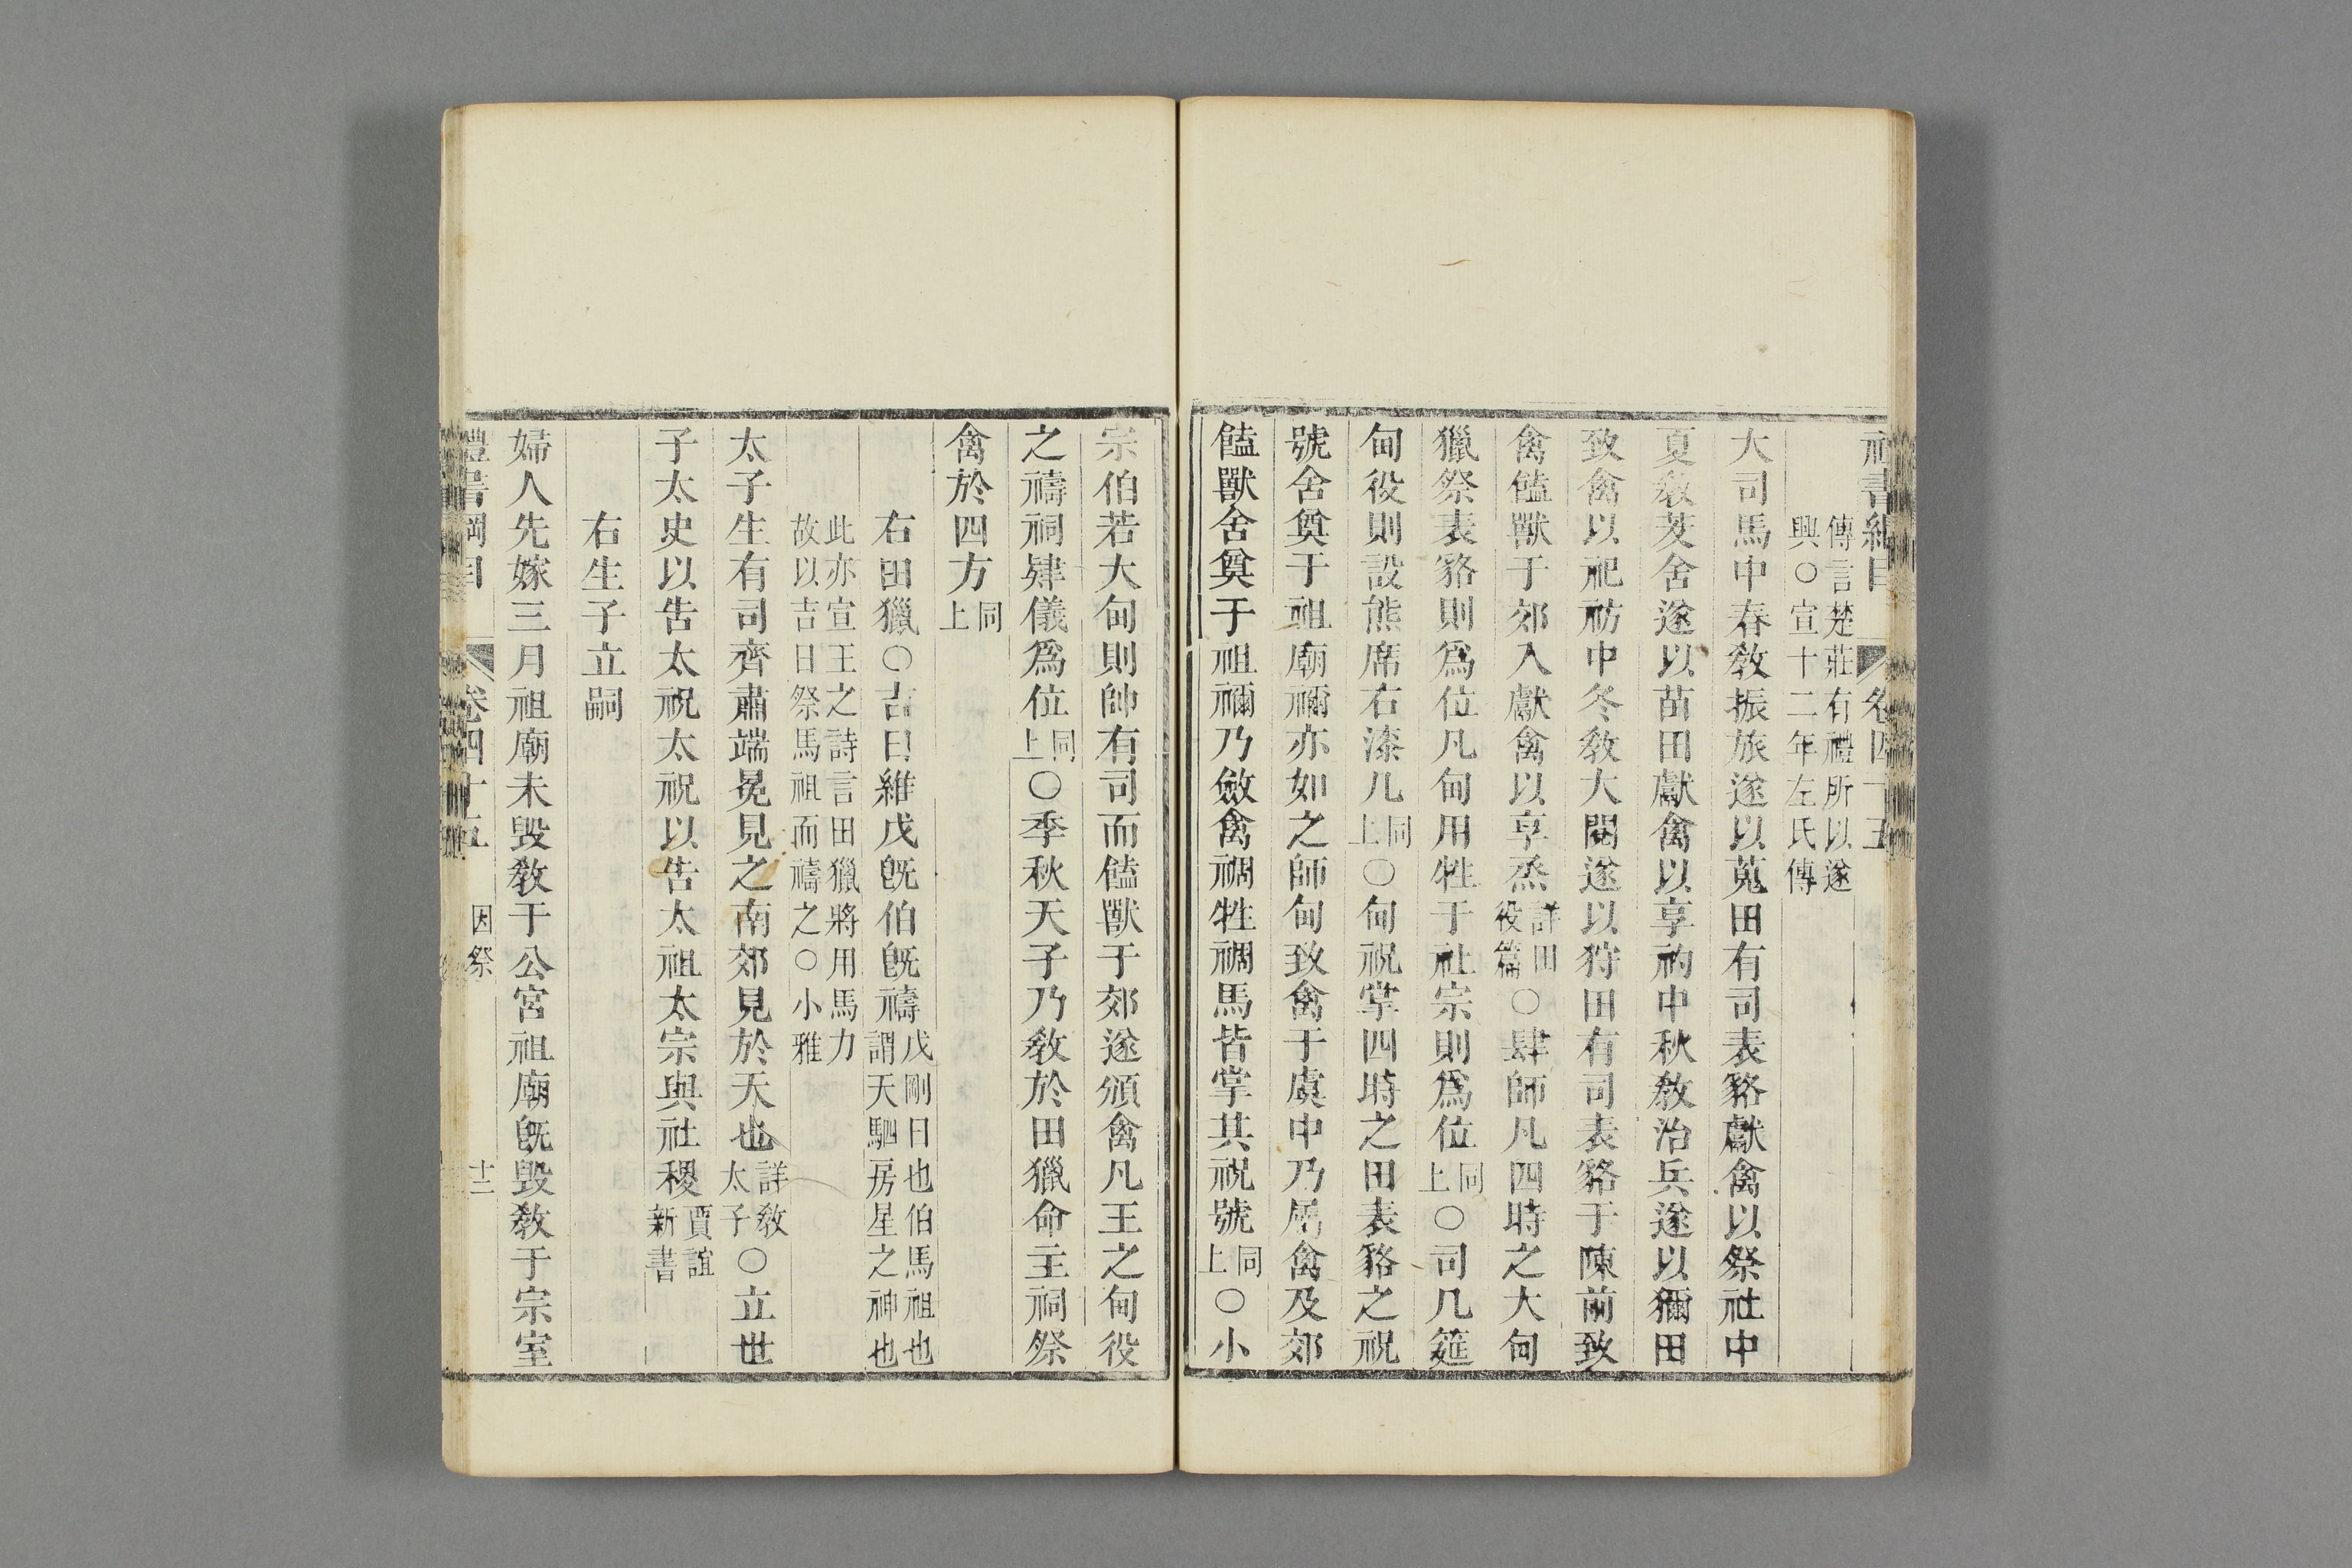 禮書綱目 卷四十五
傳言楚莊有禮所以遂
興○宣十二年左氏傳
大司馬中春敎振旅遂以蒐田有司表貉獻禽以祭社中
夏敎茇舍遂以苗田獻禽以享礿中秋敎治兵遂以獮田
致禽以祀祊中冬敎大閱遂以狩田有司表貉于陳前致
禽饁獸于郊入獻禽以享烝詳田役篇○肆師凡四時之大甸
獵祭表貉則爲位凡甸用牲于社宗則爲位同上○司几筵
甸役則設熊席右漆几同上○甸祝掌四時之田表貉之祝
號舍奠于祖廟禰亦如之師甸致禽于虞中乃屬禽及郊
饁獸舍奠于祖禰乃斂禽禂牲禂馬皆掌其祝號同上○小
宗伯若大甸則帥有司而饁獸于郊遂頒禽凡王之甸役
之禱祠肄儀爲位同上○季秋天子乃敎於田獵命主祠祭
禽於四方同上
右田獵○吉日維戊旣伯旣禱戊剛日也伯馬祖也謂天駟房星之神也
此亦宣王之詩言田獵將用馬力
故以吉日祭馬祖而禱之○小雅
太子生有司齊肅端冕見之南郊見於天也詳敎太子○立世
子太史以告太祝太祝以告太祖太宗與社稷賈誼新書
右生子立嗣
婦人先嫁三月祖廟未毀敎于公宮祖廟旣毀敎于宗室
禮書綱目 卷四十五 因祭 十二